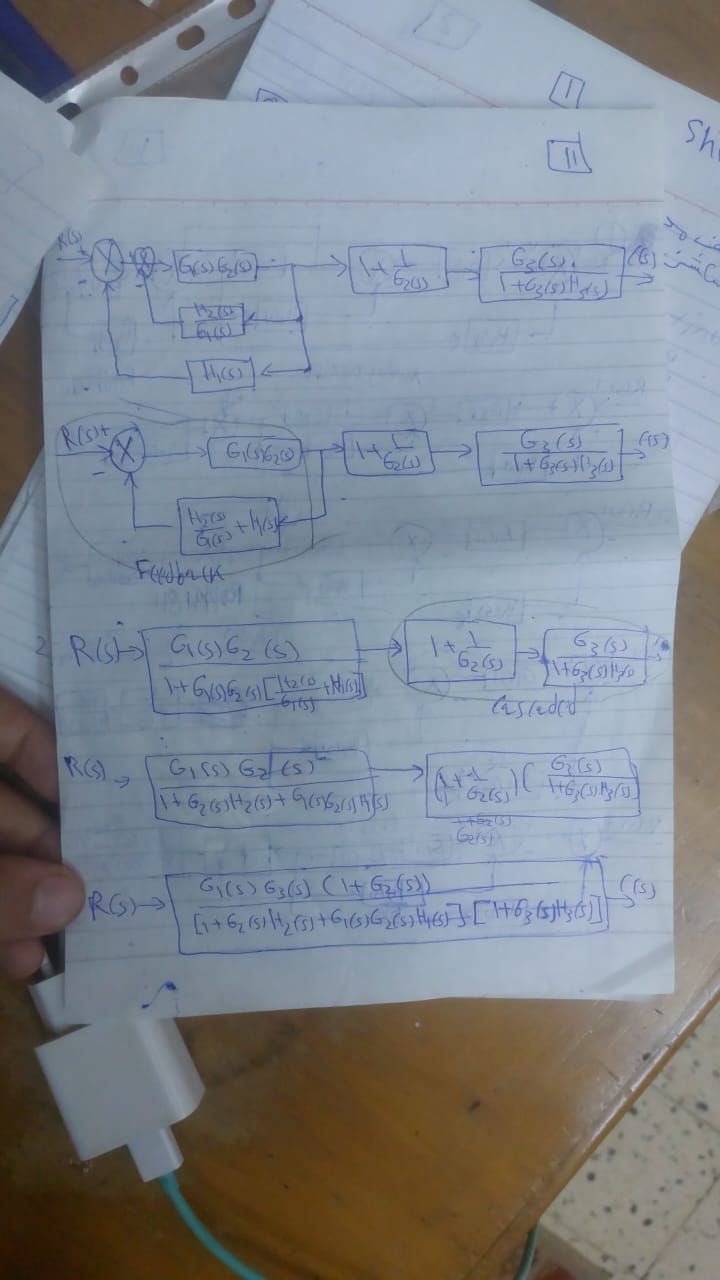 11
R(s)
+
-
G1(s) G2(s)
1 + 1/G2(s)
G3(s) / 1+G3(s)H3(s)
C(s)
H2(s)/G1(s)
H1(s)
R(s) +
-
G1(s)G2(s)
1 + 1/G2(s)
G3(s) / 1+G3(s)H3(s)
C(s)
H2(s)/G1(s) + H1(s)
Feedback
R(s) → G1(s)G2(s) / 1+G1(s)G2(s)[H2(s)/G1(s) + H1(s)] → 1 + 1/G2(s) → G3(s) / 1+G3(s)H3(s)
Cascaded
R(s) → G1(s) G2(s) / 1+G2(s)H2(s)+G1(s)G2(s)H1(s) → (1 + 1/G2(s)) ( G3(s) / 1+G3(s)H3(s) )
R(s) → G1(s) G3(s) (1+G2(s)) / [1+G2(s)H2(s)+G1(s)G2(s)H1(s)] [1+G3(s)H3(s)] → C(s)